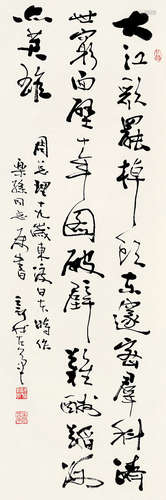 大江歌罷掉頭東邃密群科濟
世窮面壁十年圖破壁難酬蹈海
亦英雄
周總理十九歲東渡日本時作
同志屬書 新我左筆